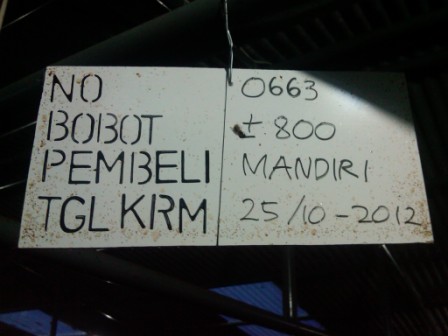 NO 0663
BOBOT ± 800
PEMBELI MANDIRI
TGL KRM 25/10-2012